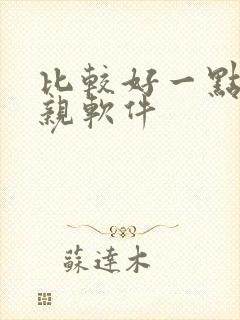 比較好一點
親軟件
蘇達木